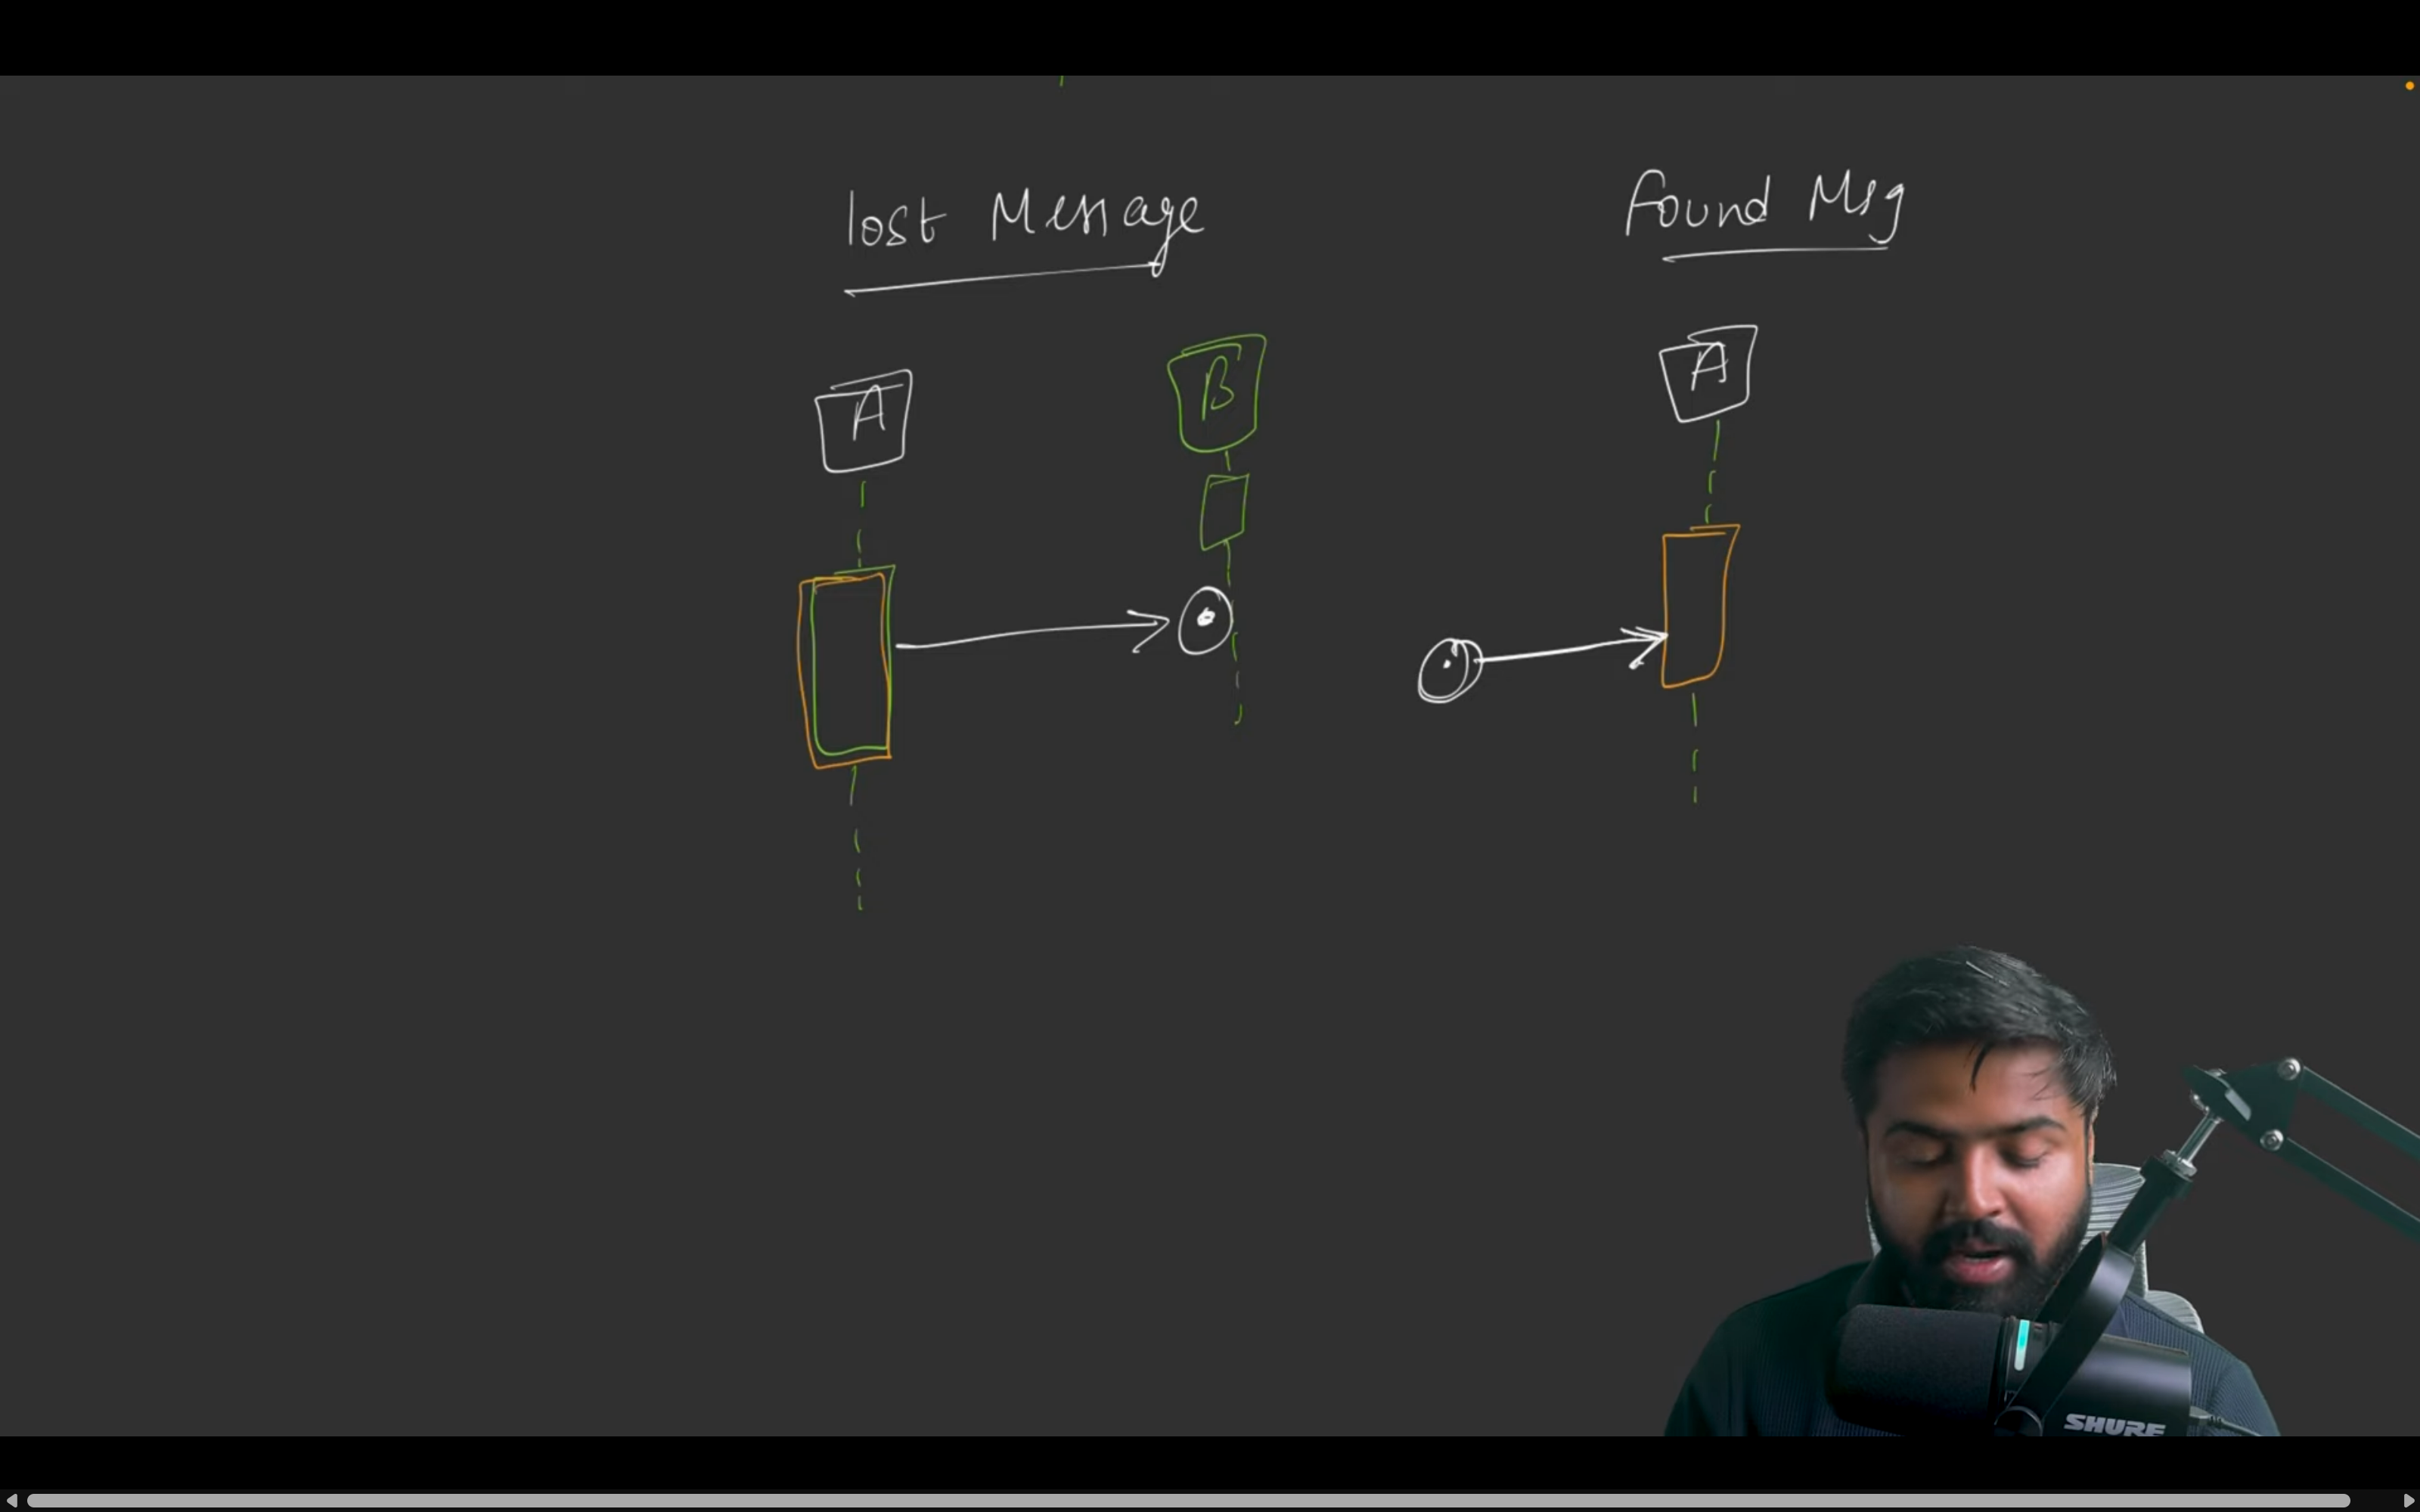 lost Message
Found Msg
A
B
A
SHURE